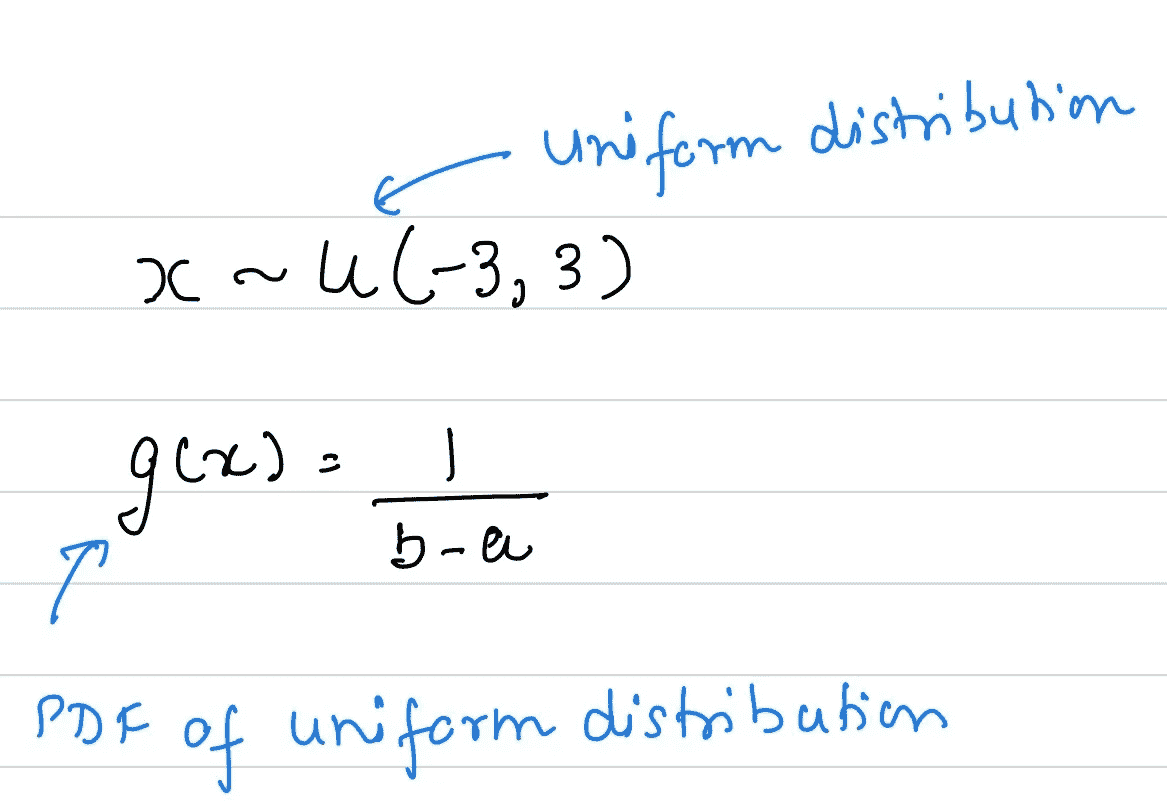 uniform distribution
x ~ U(-3, 3)
g(x) = 1
b - a
PDF of uniform distribution